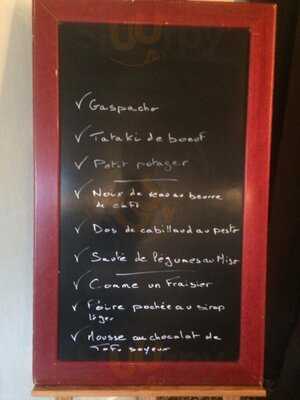 ✓ Gaspacho
✓ Tataki de boeuf
✓ Petit potager
✓ Noix de veau au beurre
de café
✓ Dos de cabillaud au pesto
✓ Sauté de légumes au Miso
✓ Comme un Fraisier
✓ Poire pochée au sirop
léger
✓ Mousse au chocolat de
Tofu soyeux